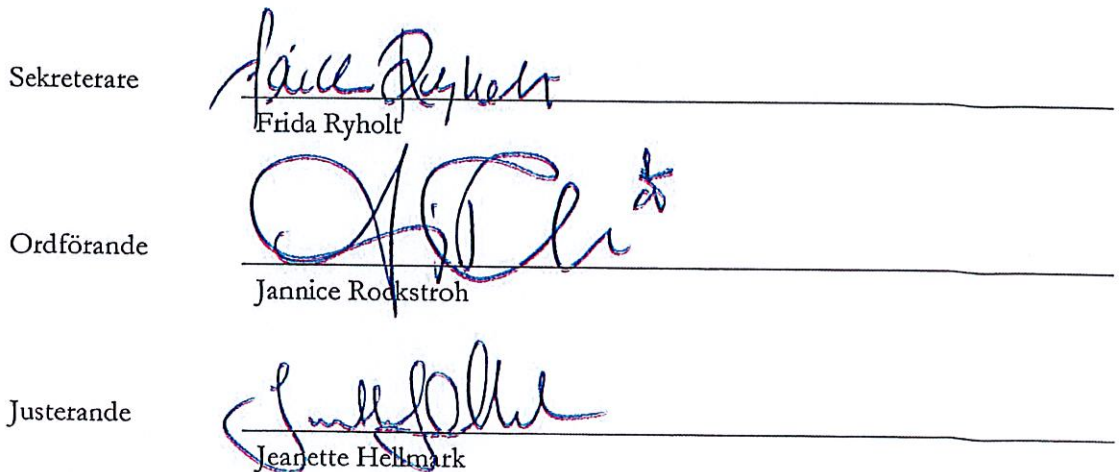 Sekreterare
Frida Ryholt
Frida Ryholt
Ordförande
Jannice Rockstroh
Justerande
Jeanette Hellmark